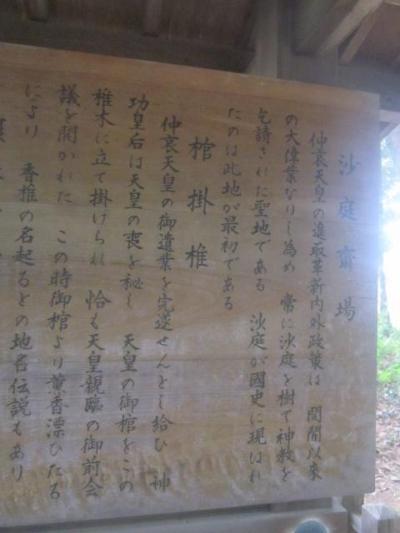 沙庭齋場
仲哀天皇の進取革新内外政策は 開闢以来
の大偉業なりし為め 常に沙庭を樹て神教を
乞請された聖地である 沙庭が國史に現はれ
たのは此地が最初である
棺掛椎
仲哀天皇の御遺業を完遂せんとし給ひ 神
功皇后は天皇の喪を秘し 天皇の御棺をこの
椎木に立て掛けられ 恰も天皇親臨の御前会
議を開かれた この時御棺より薫香漂ひたる
により 香椎の名起るとの地名伝説もあり